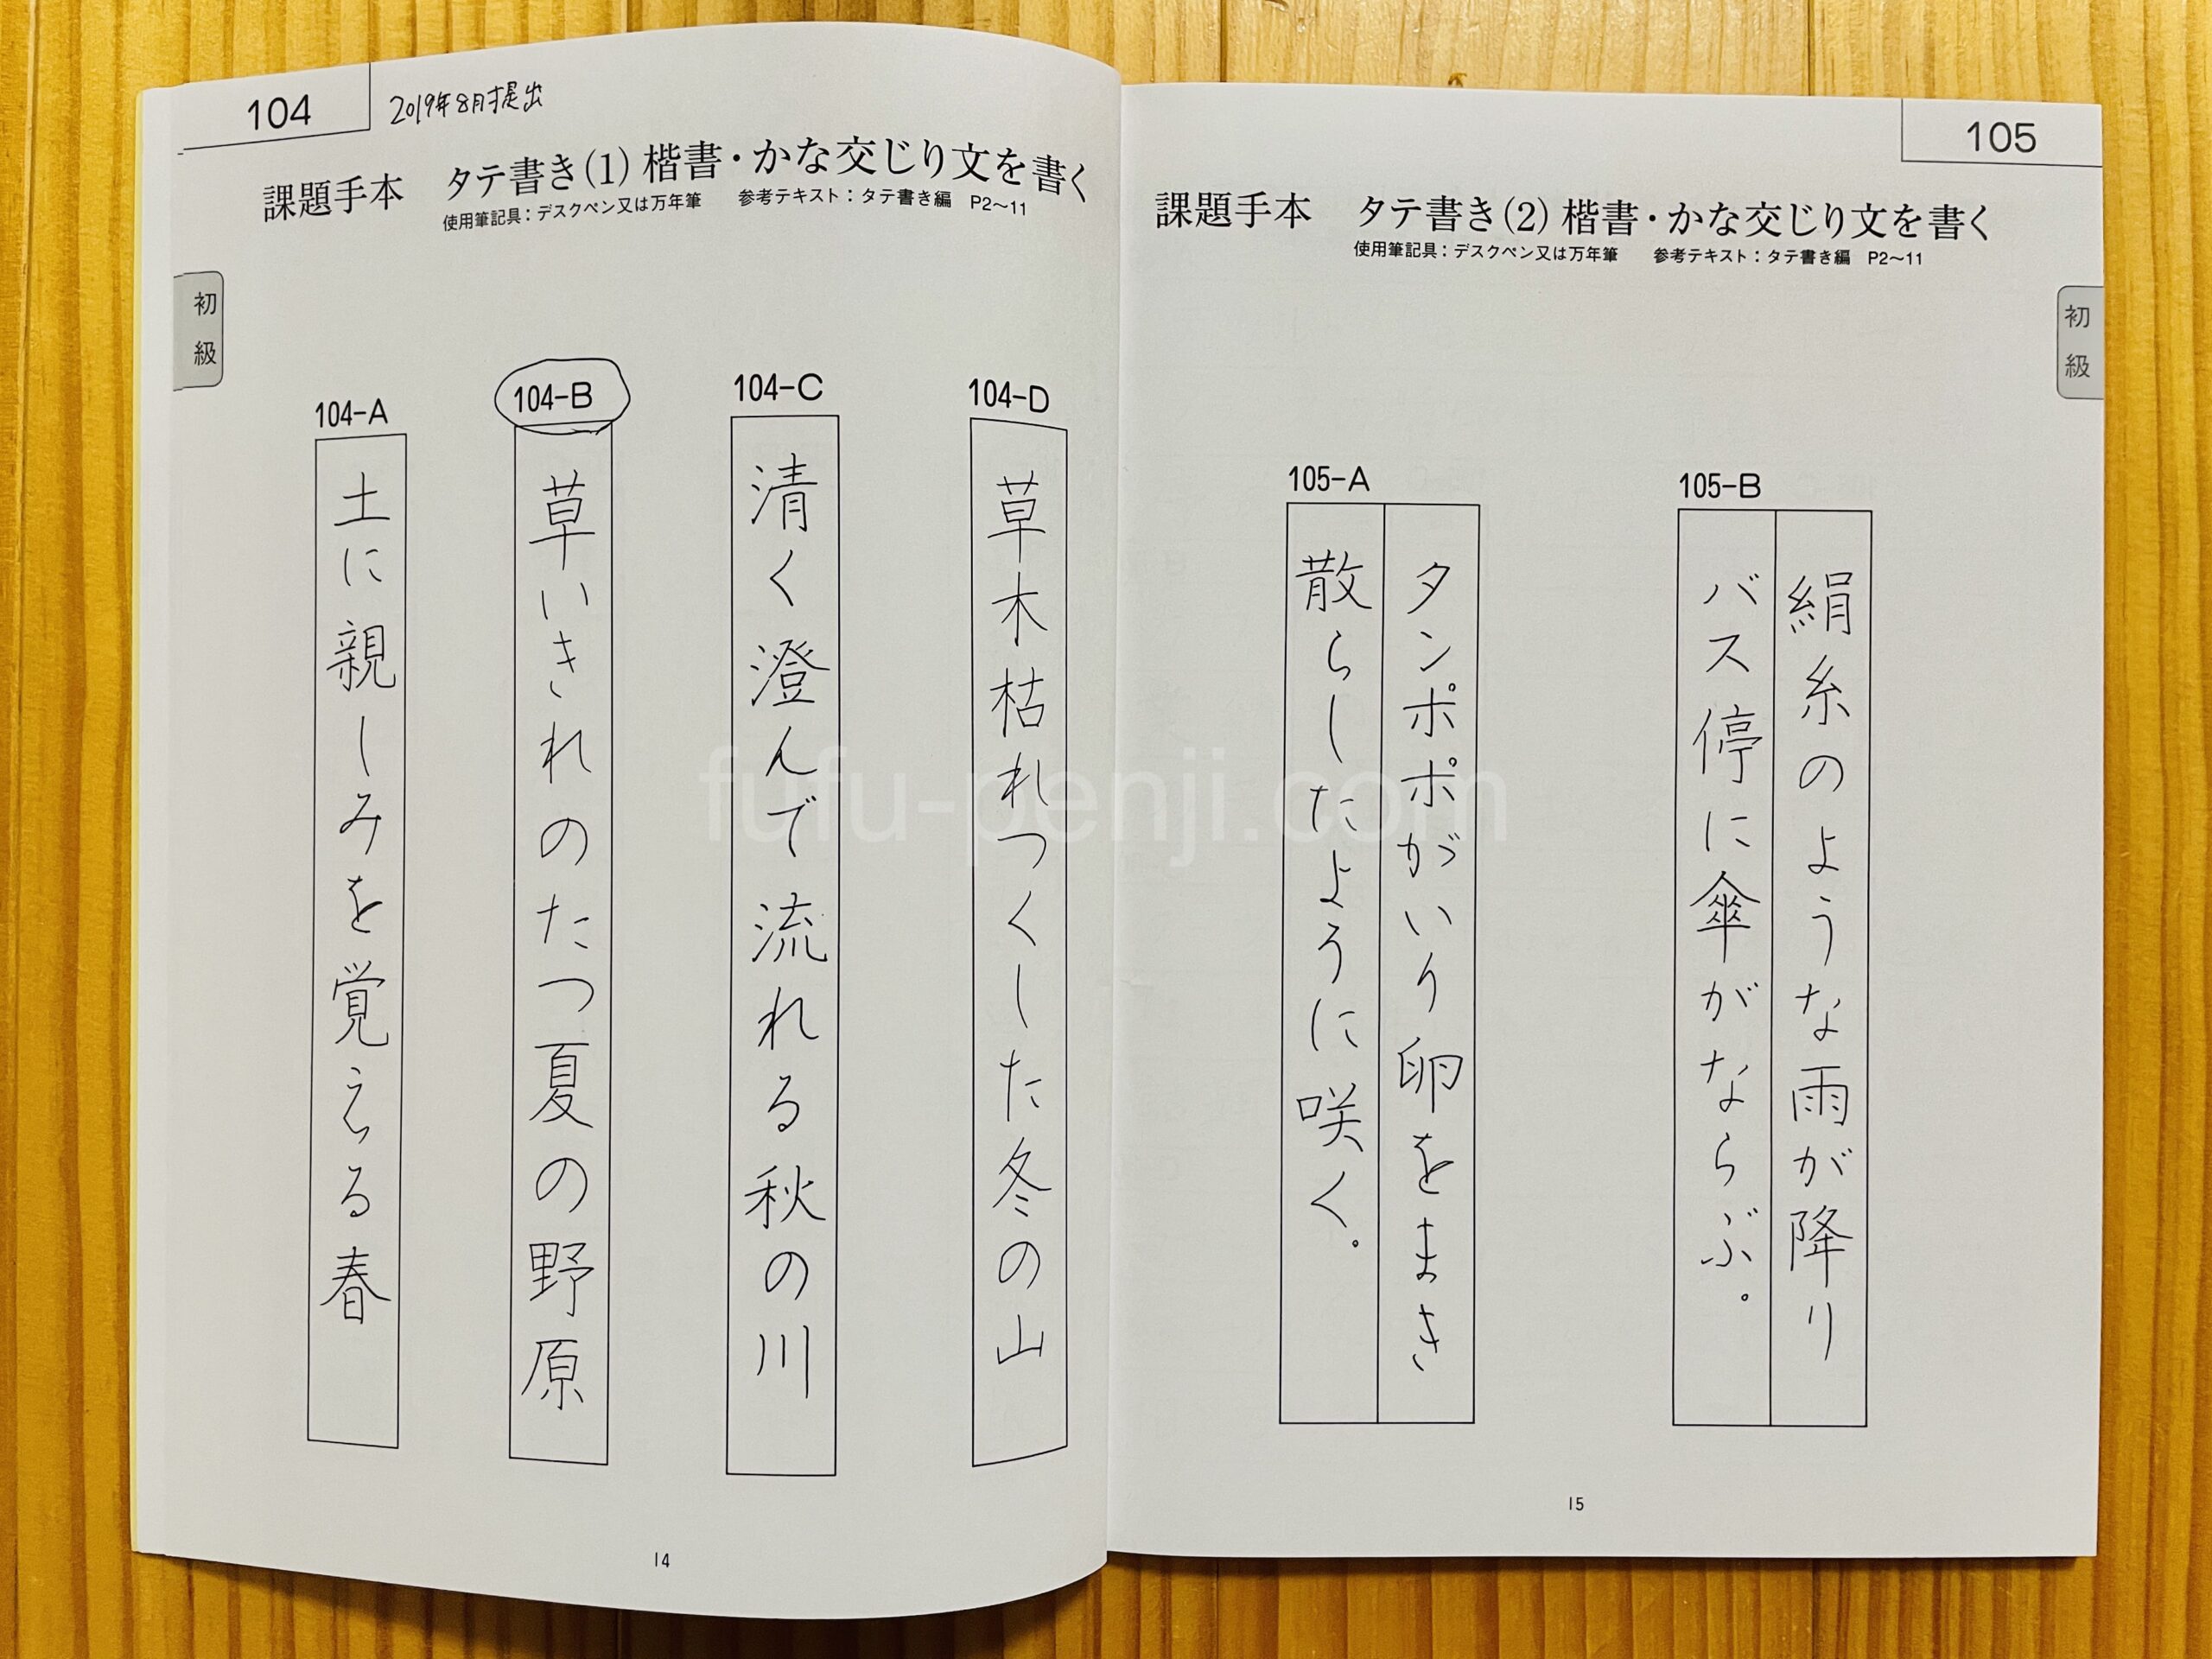 104
2019年8月提出
課題手本 タテ書き(1) 楷書・かな交じり文を書く
使用筆記具：デスクペン又は万年筆 参考テキスト：タテ書き編 P2〜11
初級
104-A
土に親しみを覚える春
104-B
草いきれのたつ夏の野原
104-C
清く澄んで流れる秋の川
104-D
草木枯れつくした冬の山
14
105
課題手本 タテ書き(2) 楷書・かな交じり文を書く
使用筆記具：デスクペン又は万年筆 参考テキスト：タテ書き編 P2〜11
初級
105-A
タンポポがいり卵をまき
散らしたように咲く。
105-B
絹糸のような雨が降り
バス停に傘がならぶ。
15
fufu-penji.com